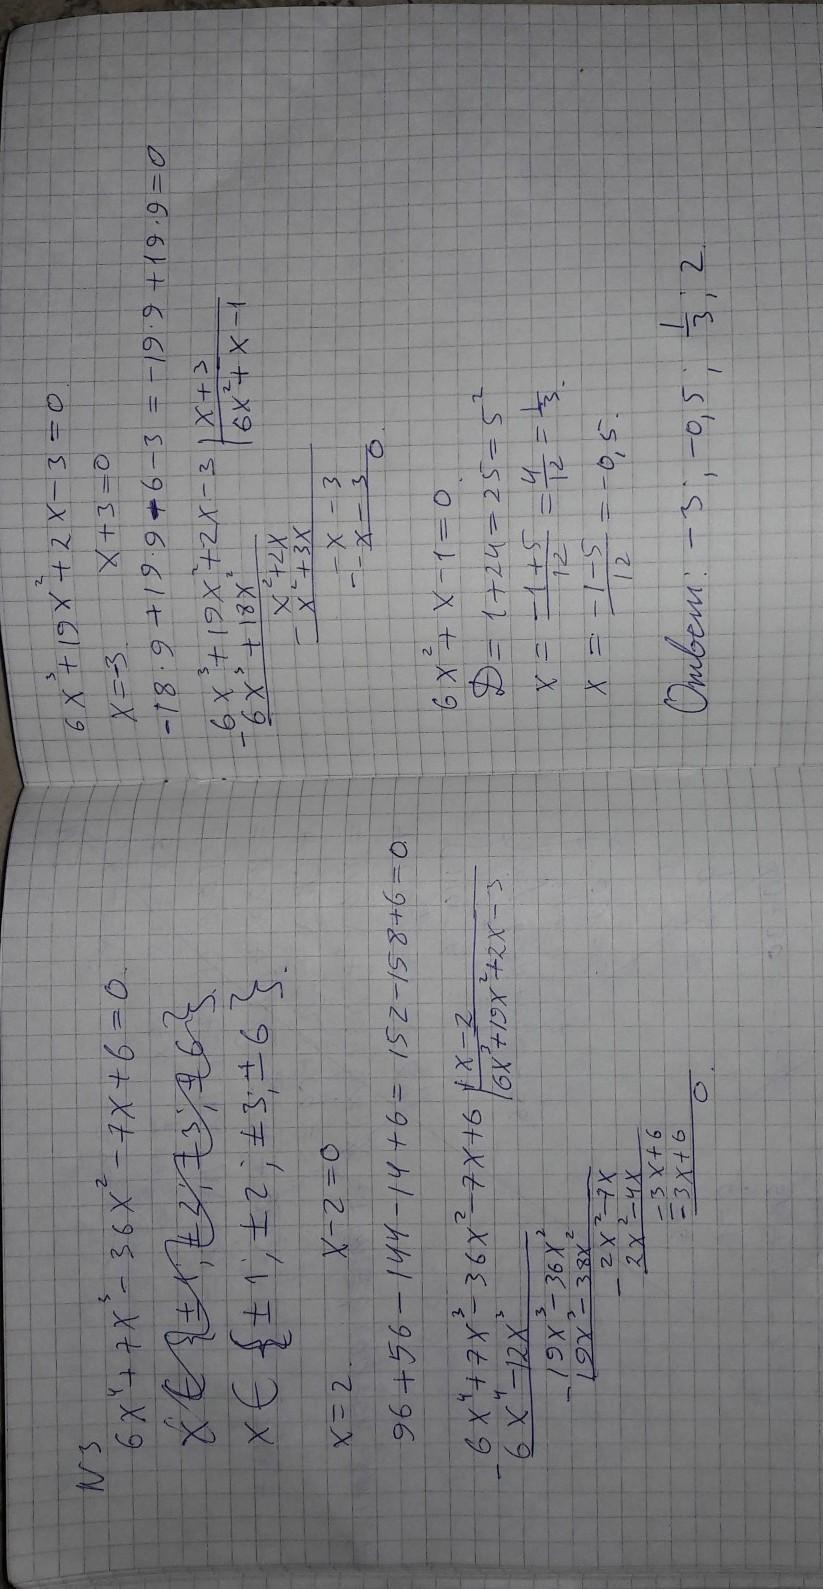 N3
6x⁴+7x³-36x²-7x+6=0.
x ∈ {±1; ±2; ±3; ±6}.
x ∈ {±1; ±2; ±3; ±6}.
x=2. x-2=0
96+56-144-14+6=152-158+6=0.
-6x⁴+7x³-36x²-7x+6 | x-2
6x⁴-12x³ | 6x³+19x²+2x-3
-19x³-36x²
19x³-38x²
-2x²-7x
2x²-4x
-3x+6
-3x+6
0.
6x³+19x²+2x-3=0.
x=-3 x+3=0
-18·9+19·9-6-3=-19·9+19·9=0
-6x³+19x²+2x-3 | x+3
6x³+18x² | 6x²+x-1
x²+2x
-x²+3x
-x-3
-x-3
0.
6x²+x-1=0.
D=1+24=25=5²
x=(-1+5)/12=4/12=1/3.
x=(-1-5)/12=-0,5.
Ответ: -3; -0,5; 1/3; 2.